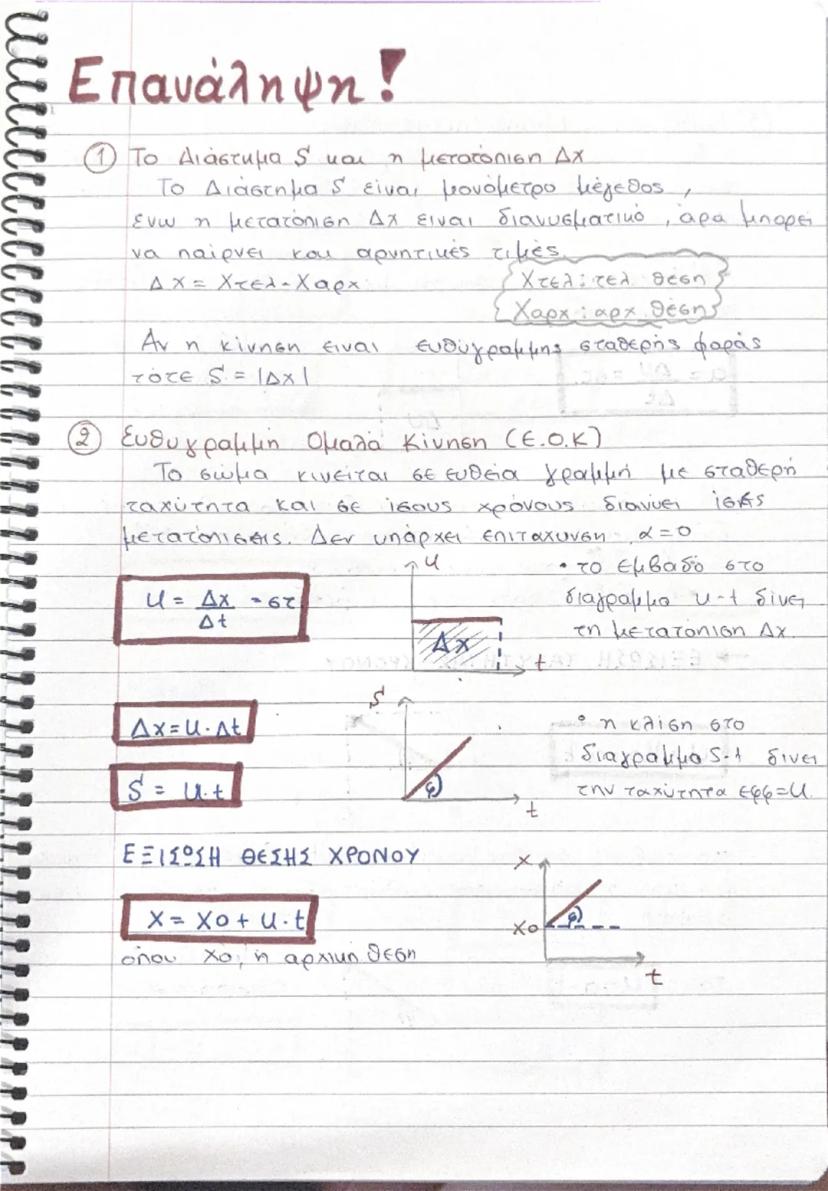 Επανάληψη!
① Το Διάστημα S και η μετατόπιση Δx
Το Διάστημα S είναι μονόμετρο μέγεθος,
ενω η μετατόπιση Δx ειναι διανυσματικό, άρα μπορεί
να παίρνει και αρνητικές τιμές.
Δx = Xτελ - Xαρχ
Xτελ: τελ θέση
Xαρχ: αρχ. θέση
Αν η κίνηση ειναι ευθύγραμμης σταθερής φοράς
τότε S = |Δx|
② Ευθυγραμμη Ομαλά Κίνηση (Ε.Ο.Κ)
Το σώμα κινείται σε ευθεία γραμμή με σταθερή
ταχύτητα και σε ίσους χρόνους διανυει ίσες
μετατόπισεις. Δεν υπάρχει επιταχυνση α=0
u = Δx/Δt = στ
u
Δx
t
• το εμβαδό στο
διαγραμμα u-t δίνει
τη μετατόπιση Δx.
Δx = u·Δt
S = u·t
S
φ
t
• η κλίση στο
διαγραμμα S-t δινει
την ταχύτητα εφφ=u.
ΕΞΙΣΩΣΗ ΘΕΣΗΣ ΧΡΟΝΟΥ
X = X0 + u·t
όπου X0, η αρχικη θεση
X
X0
φ
t